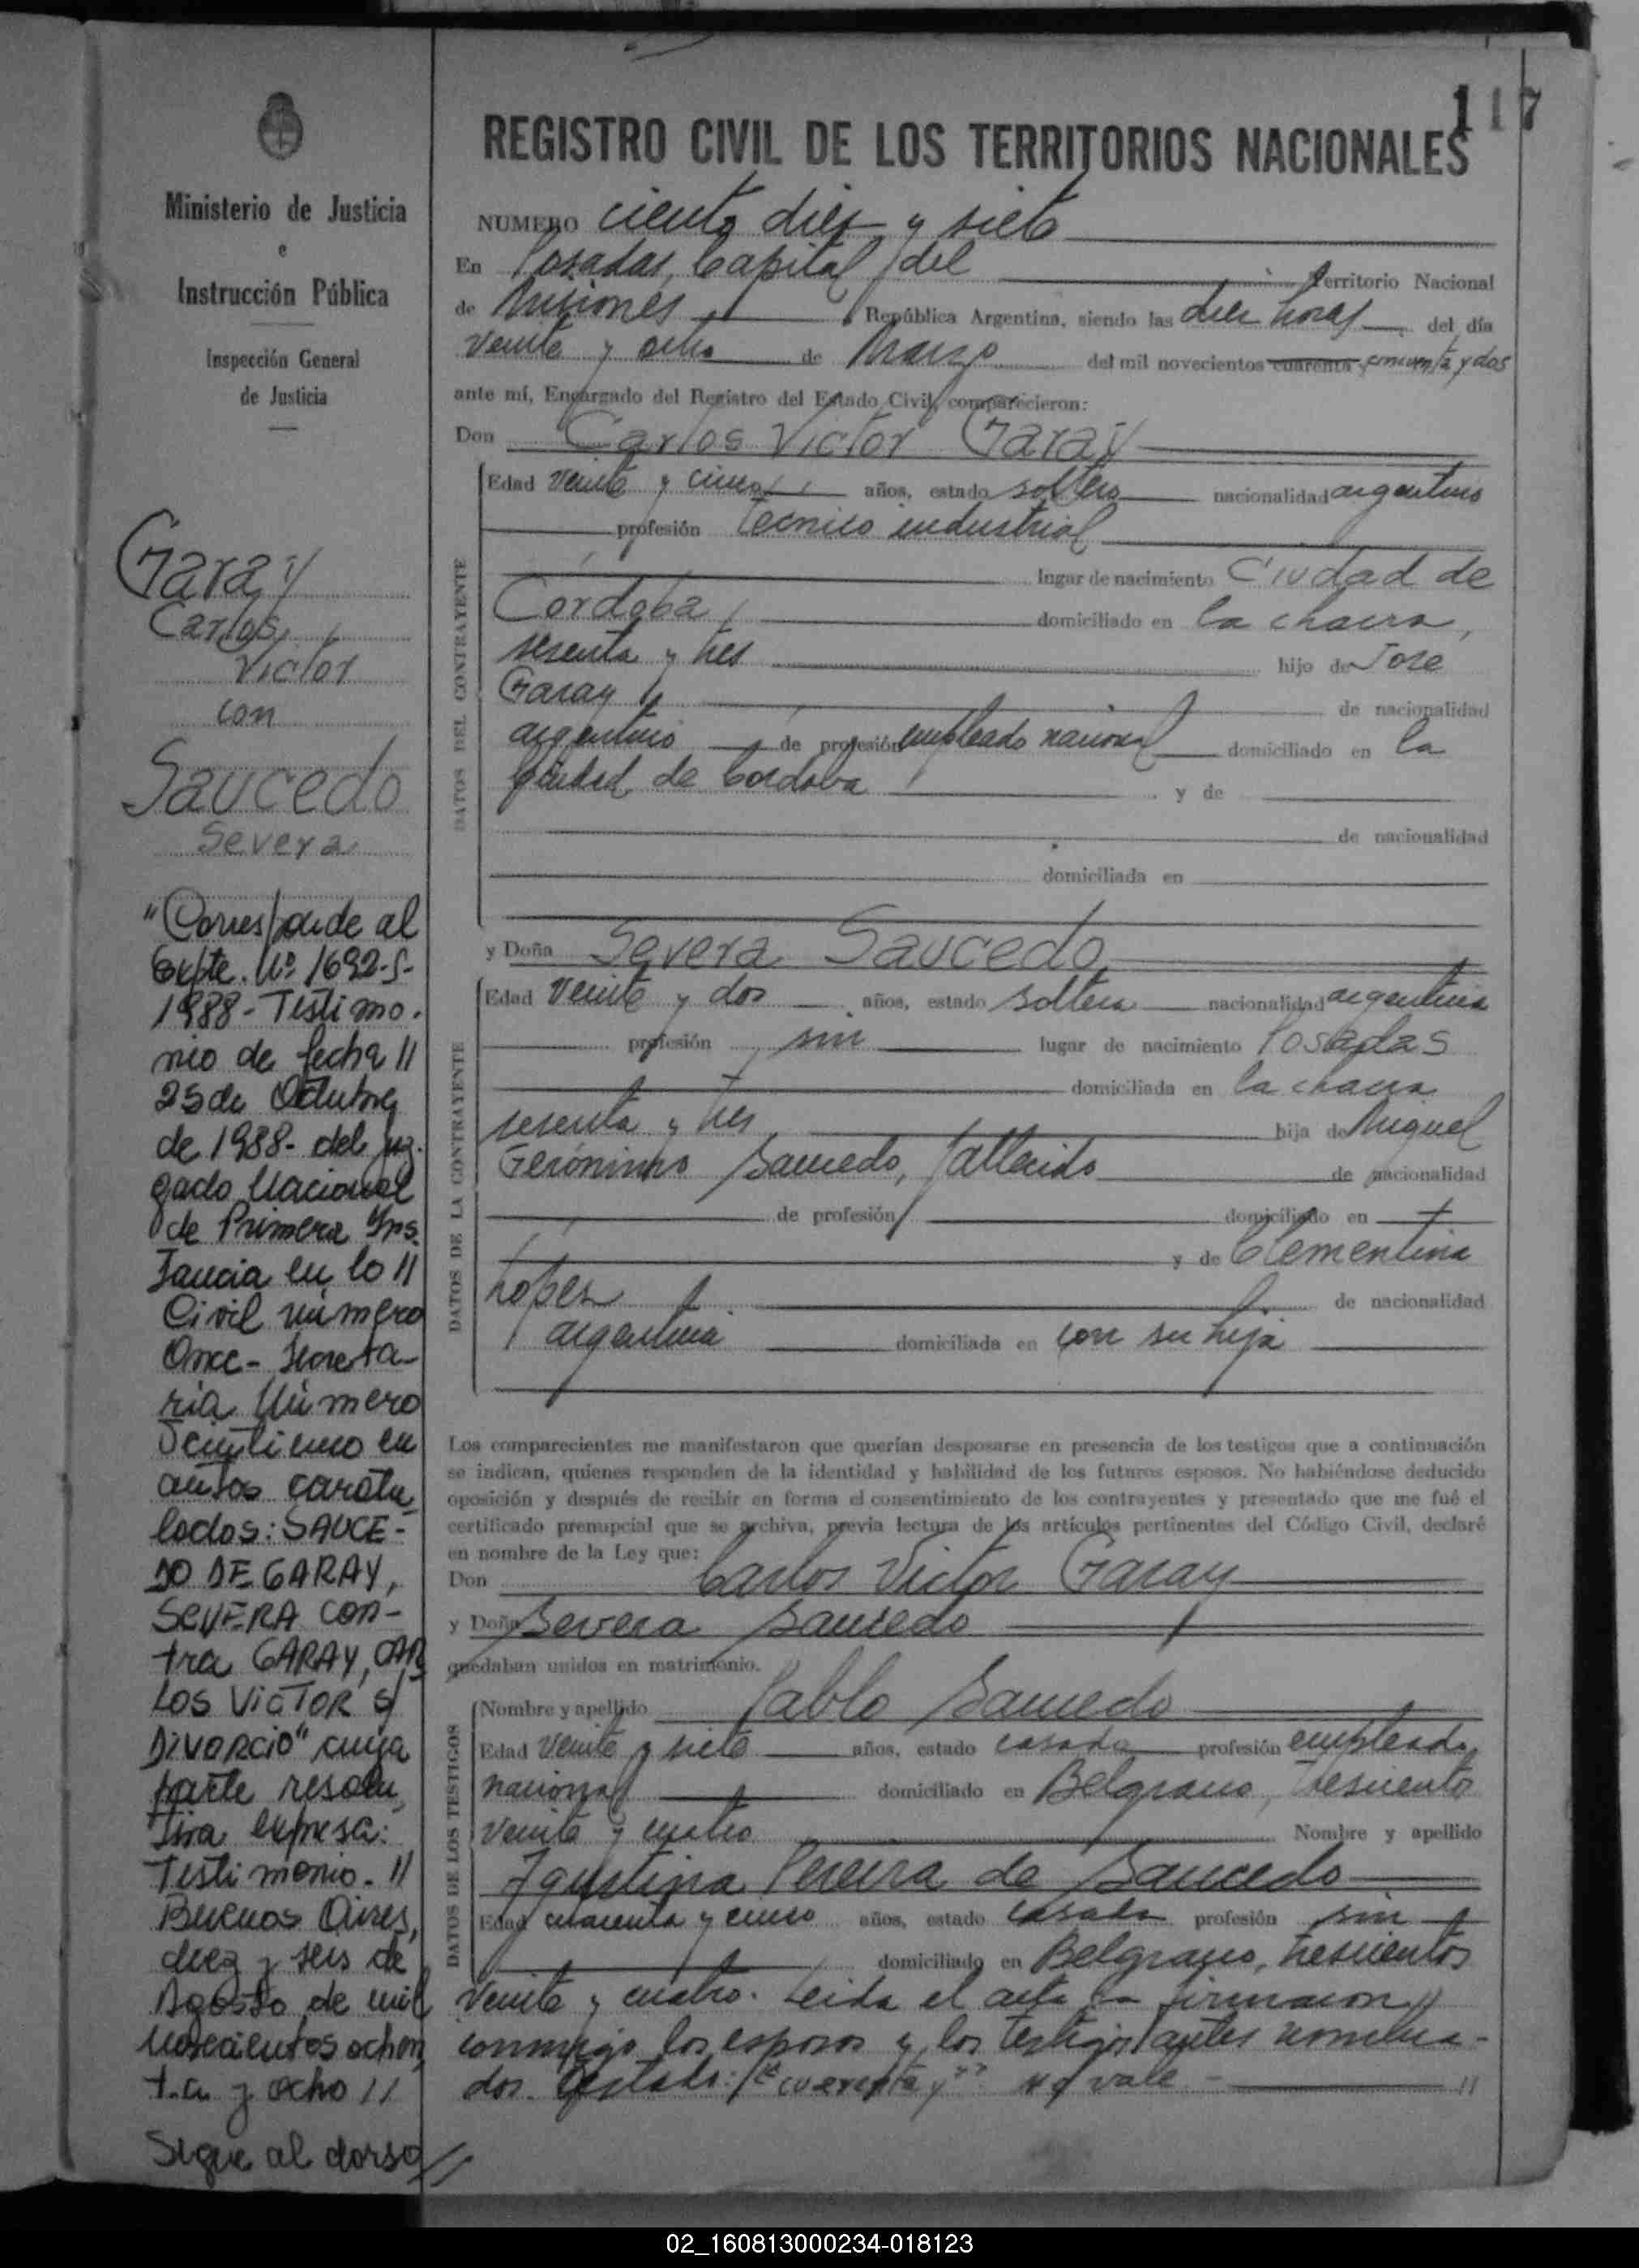 117
REGISTRO CIVIL DE LOS TERRITORIOS NACIONALES
Ministerio de Justicia
e
Instrucción Pública
Inspección General
de Justicia
Garay
Carlos
Victor
con
Saucedo
Severa
"Corresponde al
Expte. Nº 1692-S-
1988 - Testimo-
nio de fecha //
25 de Octubre
de 1988 - del Juz-
gado Nacional
de Primera Ins-
tancia en lo //
Civil número
Once - Secreta-
ria Número
Veintiuno en
autos caratu
lados: SAUCE-
DO DE GARAY,
SEVERA con-
tra GARAY, CAR
LOS VICTOR s/
DIVORCIO" cuya
parte resolu
tiva expresa:
Testimonio. //
Buenos Aires,
diez y seis de
Agosto de mil
novecientos ochen
ta y ocho //
Sigue al dorso //
NUMERO ciento diez y siete
En Posadas, Capital del Territorio Nacional
de Misiones República Argentina, siendo las diez horas del día
veinte y ocho de Marzo del mil novecientos cuarenta y cincuenta y dos
ante mí, Encargado del Registro del Estado Civil, comparecieron:
Don Carlos Victor Garay
DATOS DEL CONTRAYENTE
Edad veinte y cinco años, estado soltero nacionalidad argentino
profesión tecnico industrial
lugar de nacimiento Ciudad de
Cordoba domiciliado en la chacra,
sesenta y tres hijo de José
Garay de nacionalidad
argentino de profesión empleado nacional domiciliado en la
ciudad de Cordoba y de
de nacionalidad
domiciliada en
y Doña Severa Saucedo
DATOS DE LA CONTRAYENTE
Edad veinte y dos años, estado soltera nacionalidad argentina
profesión sin lugar de nacimiento Posadas
domiciliada en la chacra
sesenta y tres hija de Miguel
Gerónimo Saucedo, fallecido de nacionalidad
de profesión domiciliado en
y de Clementina
Lopez de nacionalidad
argentina domiciliada en con su hija
Los comparecientes me manifestaron que querían desposarse en presencia de los testigos que a continuación
se indican, quienes responden de la identidad y habilidad de los futuros esposos. No habiéndose deducido
oposición y después de recibir en forma el consentimiento de los contrayentes y presentado que me fué el
certificado prenupcial que se archiva, previa lectura de los artículos pertinentes del Código Civil, declaré
en nombre de la Ley que:
Don Carlos Victor Garay
y Doña Severa Saucedo
quedaban unidos en matrimonio.
DATOS DE LOS TESTIGOS
Nombre y apellido Pablo Saucedo
Edad veinte y siete años, estado casado profesión empleado
nacional domiciliado en Belgrano, trescientos
veinte y cuatro Nombre y apellido
Agustina Pereira de Saucedo
Edad cuarenta y cinco años, estado casada profesión sin
domiciliado en Belgrano, trescientos
veinte y cuatro. Leida el acta la firmaron //
conmigo los esposos y los testigos antes nombra-
dos. Testado: "cuarenta y" no vale - //
02_160813000234-018123